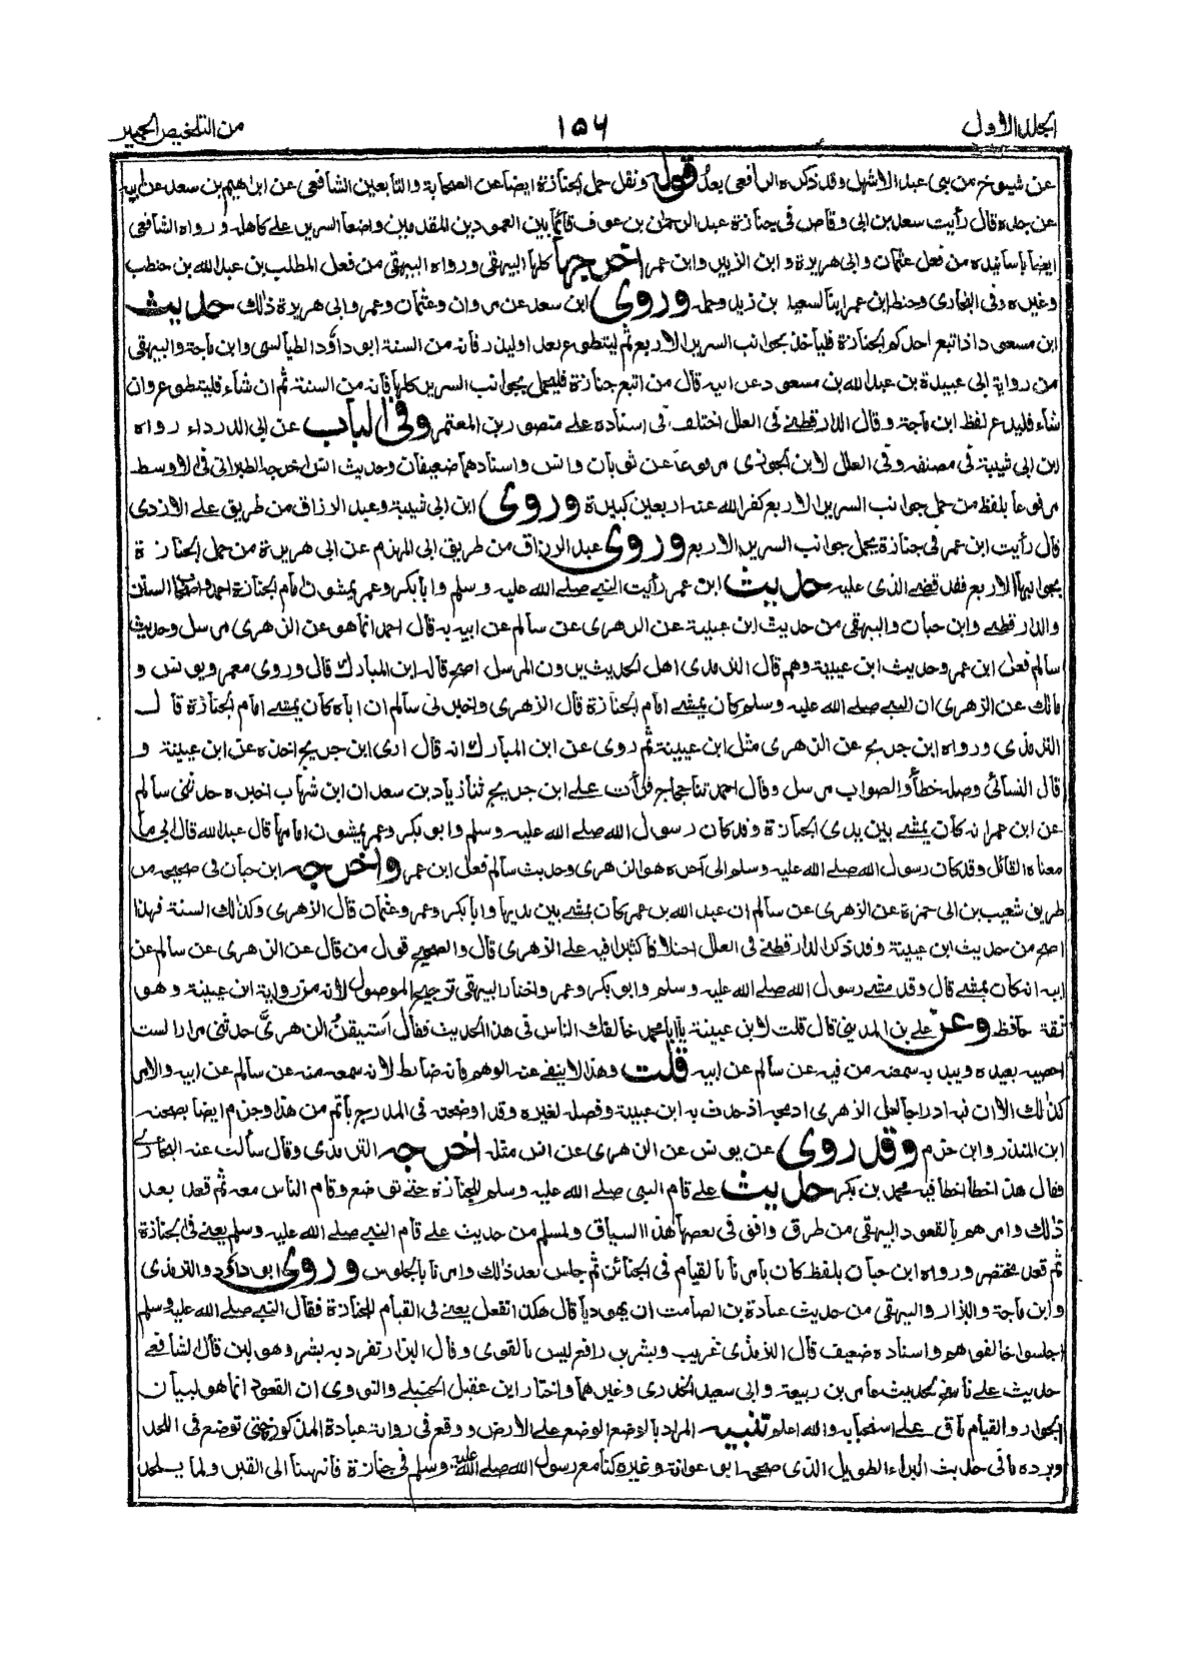 الجلد الاول
١٥٦
من التلخيص الحبير
عن شيوخ من بنى عبد الاشهل وقد ذكره الرافعى بعد قوله ونقل حمل الجنازة ايضا عن الصحابة والتابعين الشافعى عن ابراهيم بن سعد عن ابيه
عن جده قال رأيت سعد بن ابى وقاص فى جنازة عبد الرحمن بن عوف قائما بين العمودين المقدمين واضعا السرير على كاهله ورواه الشافعى
ايضا باسانيده من فعل عثمان وابى هريرة وابن الزبير وابن عمر اخرجها كلها البيهقى ورواه البيهقى من فعل المطلب بن عبد الله بن حنطب
وغيره وفى البخارى وحنط ابن عمر ابنا لسعيد بن زيد وحمله وروى ابن سعد عن مروان وعثمان وعمر وابى هريرة ذلك حديث
ابن مسعود اذا تبع احدكم الجنازة فليأخذ بجوانب السرير الاربع ثم ليتطوع بعد اوليذر فانه من السنة ابو داؤد الطيالسى وابن ماجة والبيهقى
من رواية ابى عبيدة بن عبد الله بن مسعود عن ابيه قال من اتبع جنازة فليحمل بجوانب السرير كلها فانه من السنة ثم ان شاء فليتطوع وان
شاء فليدع لفظ ابن ماجة وقال الدارقطنى فى العلل اختلف فى اسناده على منصور بن المعتمر وفى الباب عن ابى الدرداء رواه
ابن ابى شيبة فى مصنفه وفى العلل لابن الجوزى مرفوعا عن ثوبان وانس واسنادهما ضعيفان وحديث انس اخرجه الطبرانى فى الاوسط
مرفوعا بلفظ من حمل جوانب السرير الاربع كفر الله عنه اربعين كبيرة وروى ابن ابى شيبة وعبد الرزاق من طريق على الازدى
قال رأيت ابن عمر فى جنازة يحمل جوانب السرير الاربع وروى عبد الرزاق من طريق ابى المهزم عن ابى هريرة من حمل الجنازة
بجوانبها الاربع فقد قضى الذى عليه حديث ابن عمر رأيت النبى صلى الله عليه وسلم وابا بكر وعمر يمشون امام الجنازة احمد واصحاب السنن
والدارقطنى وابن حبان والبيهقى من حديث ابن عيينة عن الزهرى عن سالم عن ابيه به قال احمد انما هو عن الزهرى مرسل وحديث
سالم فعل ابن عمر وحديث ابن عيينة وهم قال الترمذى اهل الحديث يرون المرسل اصح قاله ابن المبارك قال وروى معمر ويونس و
مالك عن الزهرى ان النبى صلى الله عليه وسلم كان يمشى امام الجنازة قال الزهرى واخبرنى سالم ان اباه كان يمشى امام الجنازة قال
الترمذى ورواه ابن جريج عن الزهرى مثل ابن عيينة ثم روى عن ابن المبارك انه قال ارى ابن جريج اخذه عن ابن عيينة و
قال النسائى وصله خطأ والصواب مرسل وقال احمد ثنا حجاج قرأت على ابن جريج ثنا زياد بن سعد ان ابن شهاب اخبره حدثنى سالم
عن ابن عمر انه كان يمشى بين يدى الجنازة وقد كان رسول الله صلى الله عليه وسلم وابو بكر وعمر يمشون امامها قال عبد الله قال ابى ما
معناه القائل وقد كان رسول الله صلى الله عليه وسلم الى آخره هو الزهرى وحديث سالم فعل ابن عمر واخرجه ابن حبان فى صحيحه من
طريق شعيب بن ابى حمزة عن الزهرى عن سالم ان عبد الله بن عمر كان يمشى بين يديها وابا بكر وعمر وعثمان قال الزهرى وكذلك السنة فهذا
اصح من حديث ابن عيينة وقد ذكر الدارقطنى فى العلل اختلافا كثيرا فيه على الزهرى قال والصحيح قول من قال عن الزهرى عن سالم عن
ابيه انه كان يمشى قال وقد مشى رسول الله صلى الله عليه وسلم وابو بكر وعمر واختار البيهقى ترجيح الموصول لانه من رواية ابن عيينة وهو
ثقة حافظ وعن على بن المدينى قال قلت لابن عيينة يا ابا محمد خالفك الناس فى هذا الحديث فقال استيقن الزهرى حدثنى مرارا لست
احصيه يعيده ويبديه سمعته من فيه عن سالم عن ابيه قلت وهذا لا ينفى عنه الوهم فانه ضابط لانه سمعه منه عن سالم عن ابيه والامر
كذلك الا ان فيه ادراجا لعل الزهرى ادمجه اذ حدث به ابن عيينة وفصله لغيره وقد اوضحته فى المدرج باتم من هذا وجزم ايضا بصحته
ابن المنذر وابن حزم وقد روى عن يونس عن الزهرى عن انس مثله اخرجه الترمذى وقال سألت عنه البخارى
فقال هذا خطأ اخطأ فيه محمد بن بكر حديث على قام النبى صلى الله عليه وسلم للجنازة حتى توضع وقام الناس معه ثم قعد بعد
ذلك وامرهم بالقعود البيهقى من طرق وافق فى بعضها هذا السياق ولمسلم من حديث على قام النبى صلى الله عليه وسلم يعنى فى الجنازة
ثم قعد مختصر ورواه ابن حبان بلفظ كان يأمرنا بالقيام فى الجنائز ثم جلس بعد ذلك وامرنا بالجلوس وروى ابو داؤد والترمذى
وابن ماجة والبزار والبيهقى من حديث عبادة بن الصامت ان يهوديا قال هكذا نفعل يعنى فى القيام للجنازة فقال النبى صلى الله عليه وسلم
اجلسوا خالفوهم واسناده ضعيف قال الترمذى غريب وبشر بن رافع ليس بالقوى وقال البزار تفرد به بشر وهو لين قال الشافعى
حديث على ناسخ لحديث عامر بن ربيعة وابى سعيد الخدرى وغيرهما واختار ابن عقيل الحنبلى والنووى ان القعود انما هو لبيان
الجواز والقيام باق على استحبابه والله اعلم تنبيه المراد بالوضع الوضع على الارض ووقع فى رواية عبادة المذكور حتى توضع فى اللحد
ويرده ما فى حديث البراء الطويل الذى صححه ابو عوانة وغيره كنا مع رسول الله صلى الله عليه وسلم فى جنازة فانتهينا الى القبر ولما يلحد